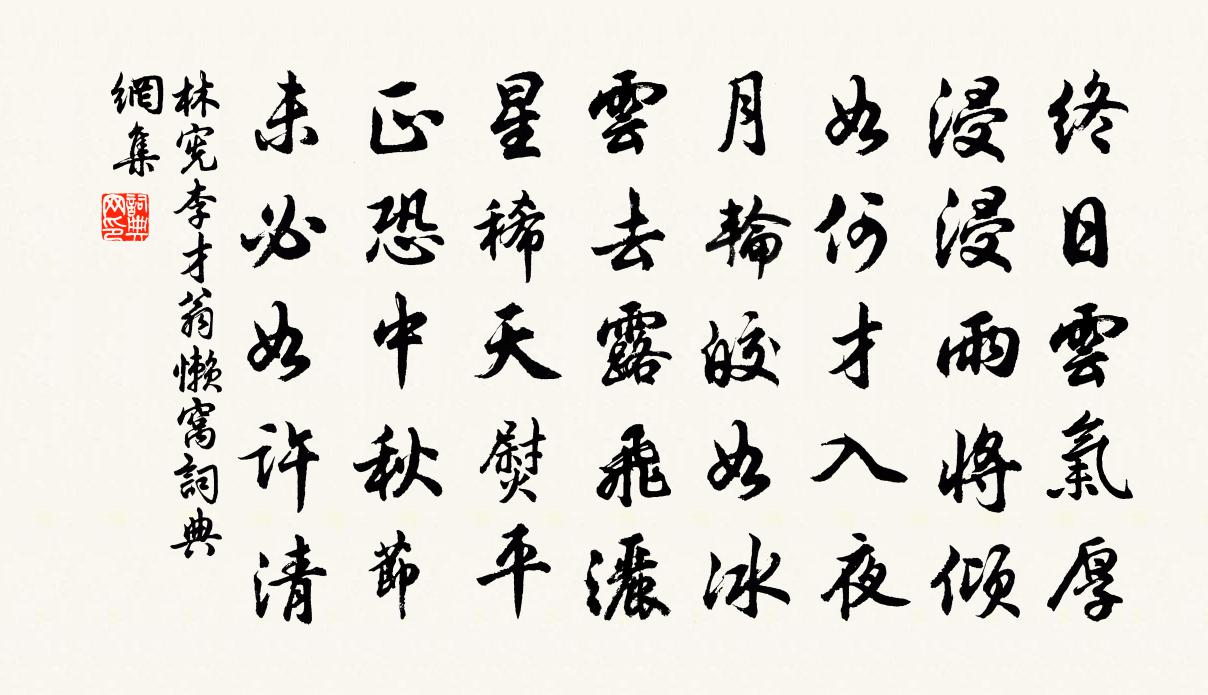 終日雲氣厚
浸浸雨將傾
如何才入夜
月輪皎如冰
雲去露飛灑
星稀天熨平
正恐中秋節
未必如許清
林宪李才翁懶窩詞典
網集
詞典
网